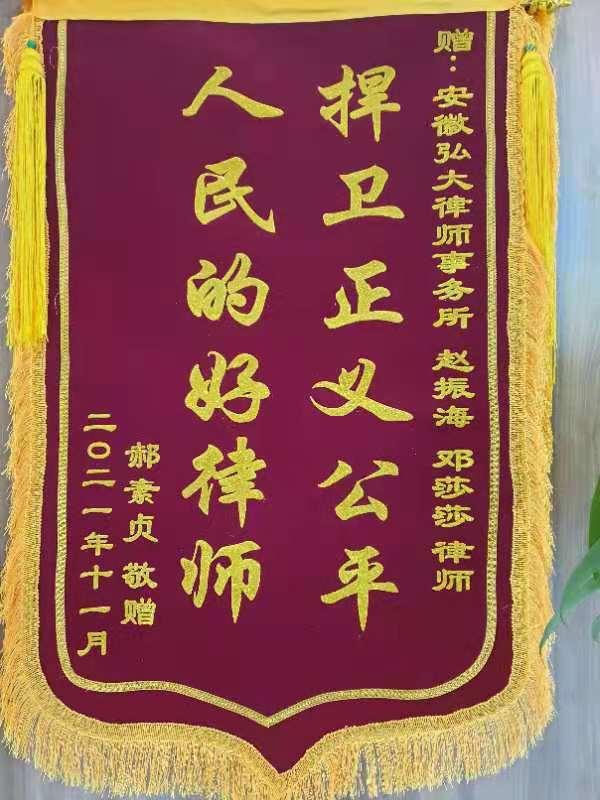 赠：安徽弘大律师事务所 赵振海 邓莎莎 律师
捍卫正义公平
人民的好律师
郝素贞 敬赠
二〇二一年十一月